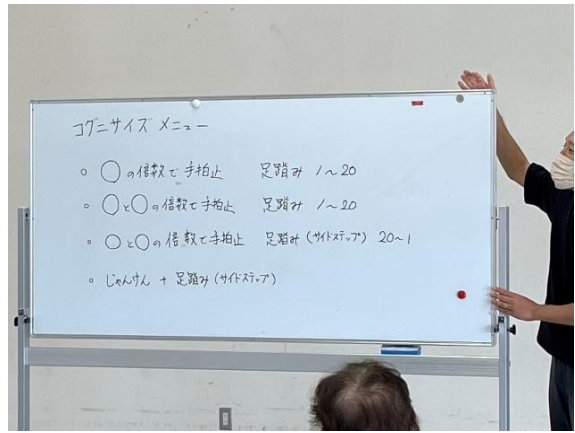 コグニサイズ メニュー
○の倍数で手拍止 足踏み 1〜20
○と○の倍数で手拍止 足踏み 1〜20
○と○の倍数で手拍止 足踏み(サイドステップ) 20〜1
じゃんけん + 足踏み(サイドステップ)